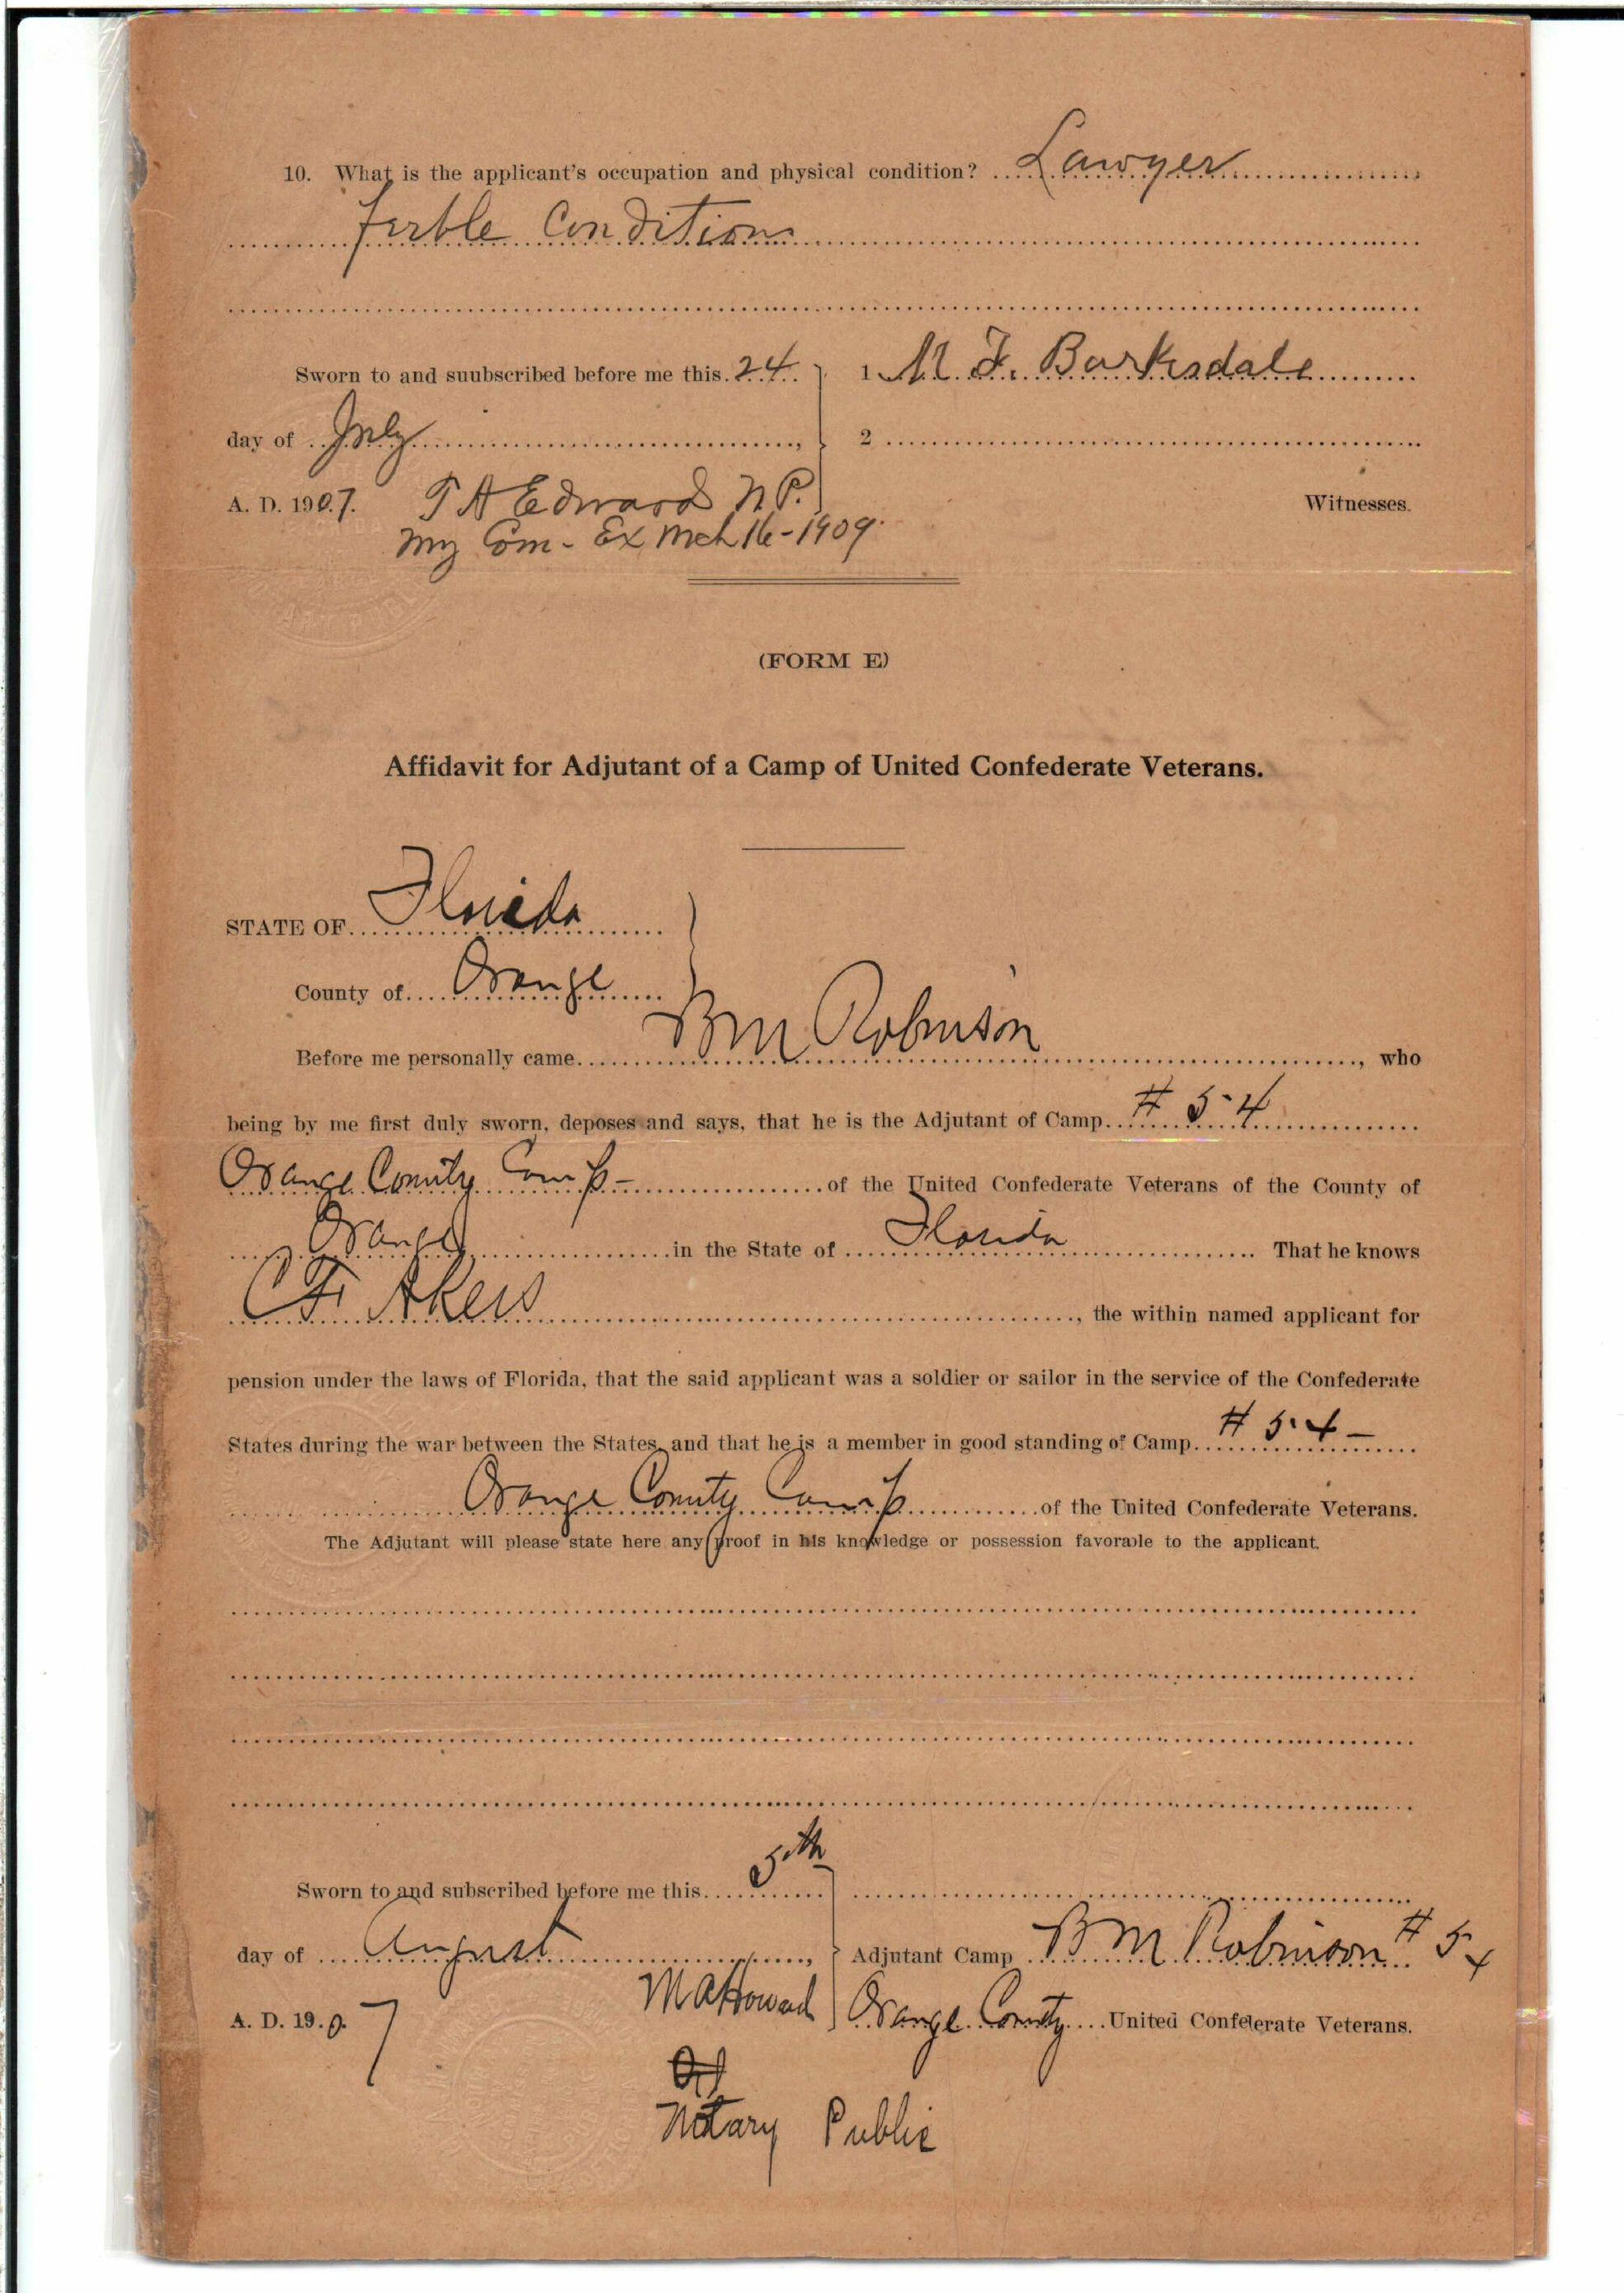 10. What is the applicant's occupation and physical condition? Lawyer
Conditions
Sworn to and suubscribed before me this 24 1 M. F. Barksdale
day of July, 2
A. D. 1907. T A Edward N P. Witnesses.
My Com - Ex Mch 16 - 1909.
(FORM E)
Affidavit for Adjutant of a Camp of United Confederate Veterans.
STATE OF Florida
County of Orange
Before me personally came B M Robinson, who
being by me first duly sworn, deposes and says, that he is the Adjutant of Camp # 54
Orange County Camp - of the United Confederate Veterans of the County of
Orange in the State of Florida. That he knows
C F Akers, the within named applicant for
pension under the laws of Florida, that the said applicant was a soldier or sailor in the service of the Confederate
States during the war between the States, and that he is a member in good standing of Camp # 54 -
Orange County Camp of the United Confederate Veterans.
The Adjutant will please state here any proof in his knowledge or possession favorable to the applicant.
Sworn to and subscribed before me this 5th
day of August, Adjutant Camp B M Robinson # 54
A. D. 1907 M A Howard Orange County United Confederate Veterans.
Notary Public